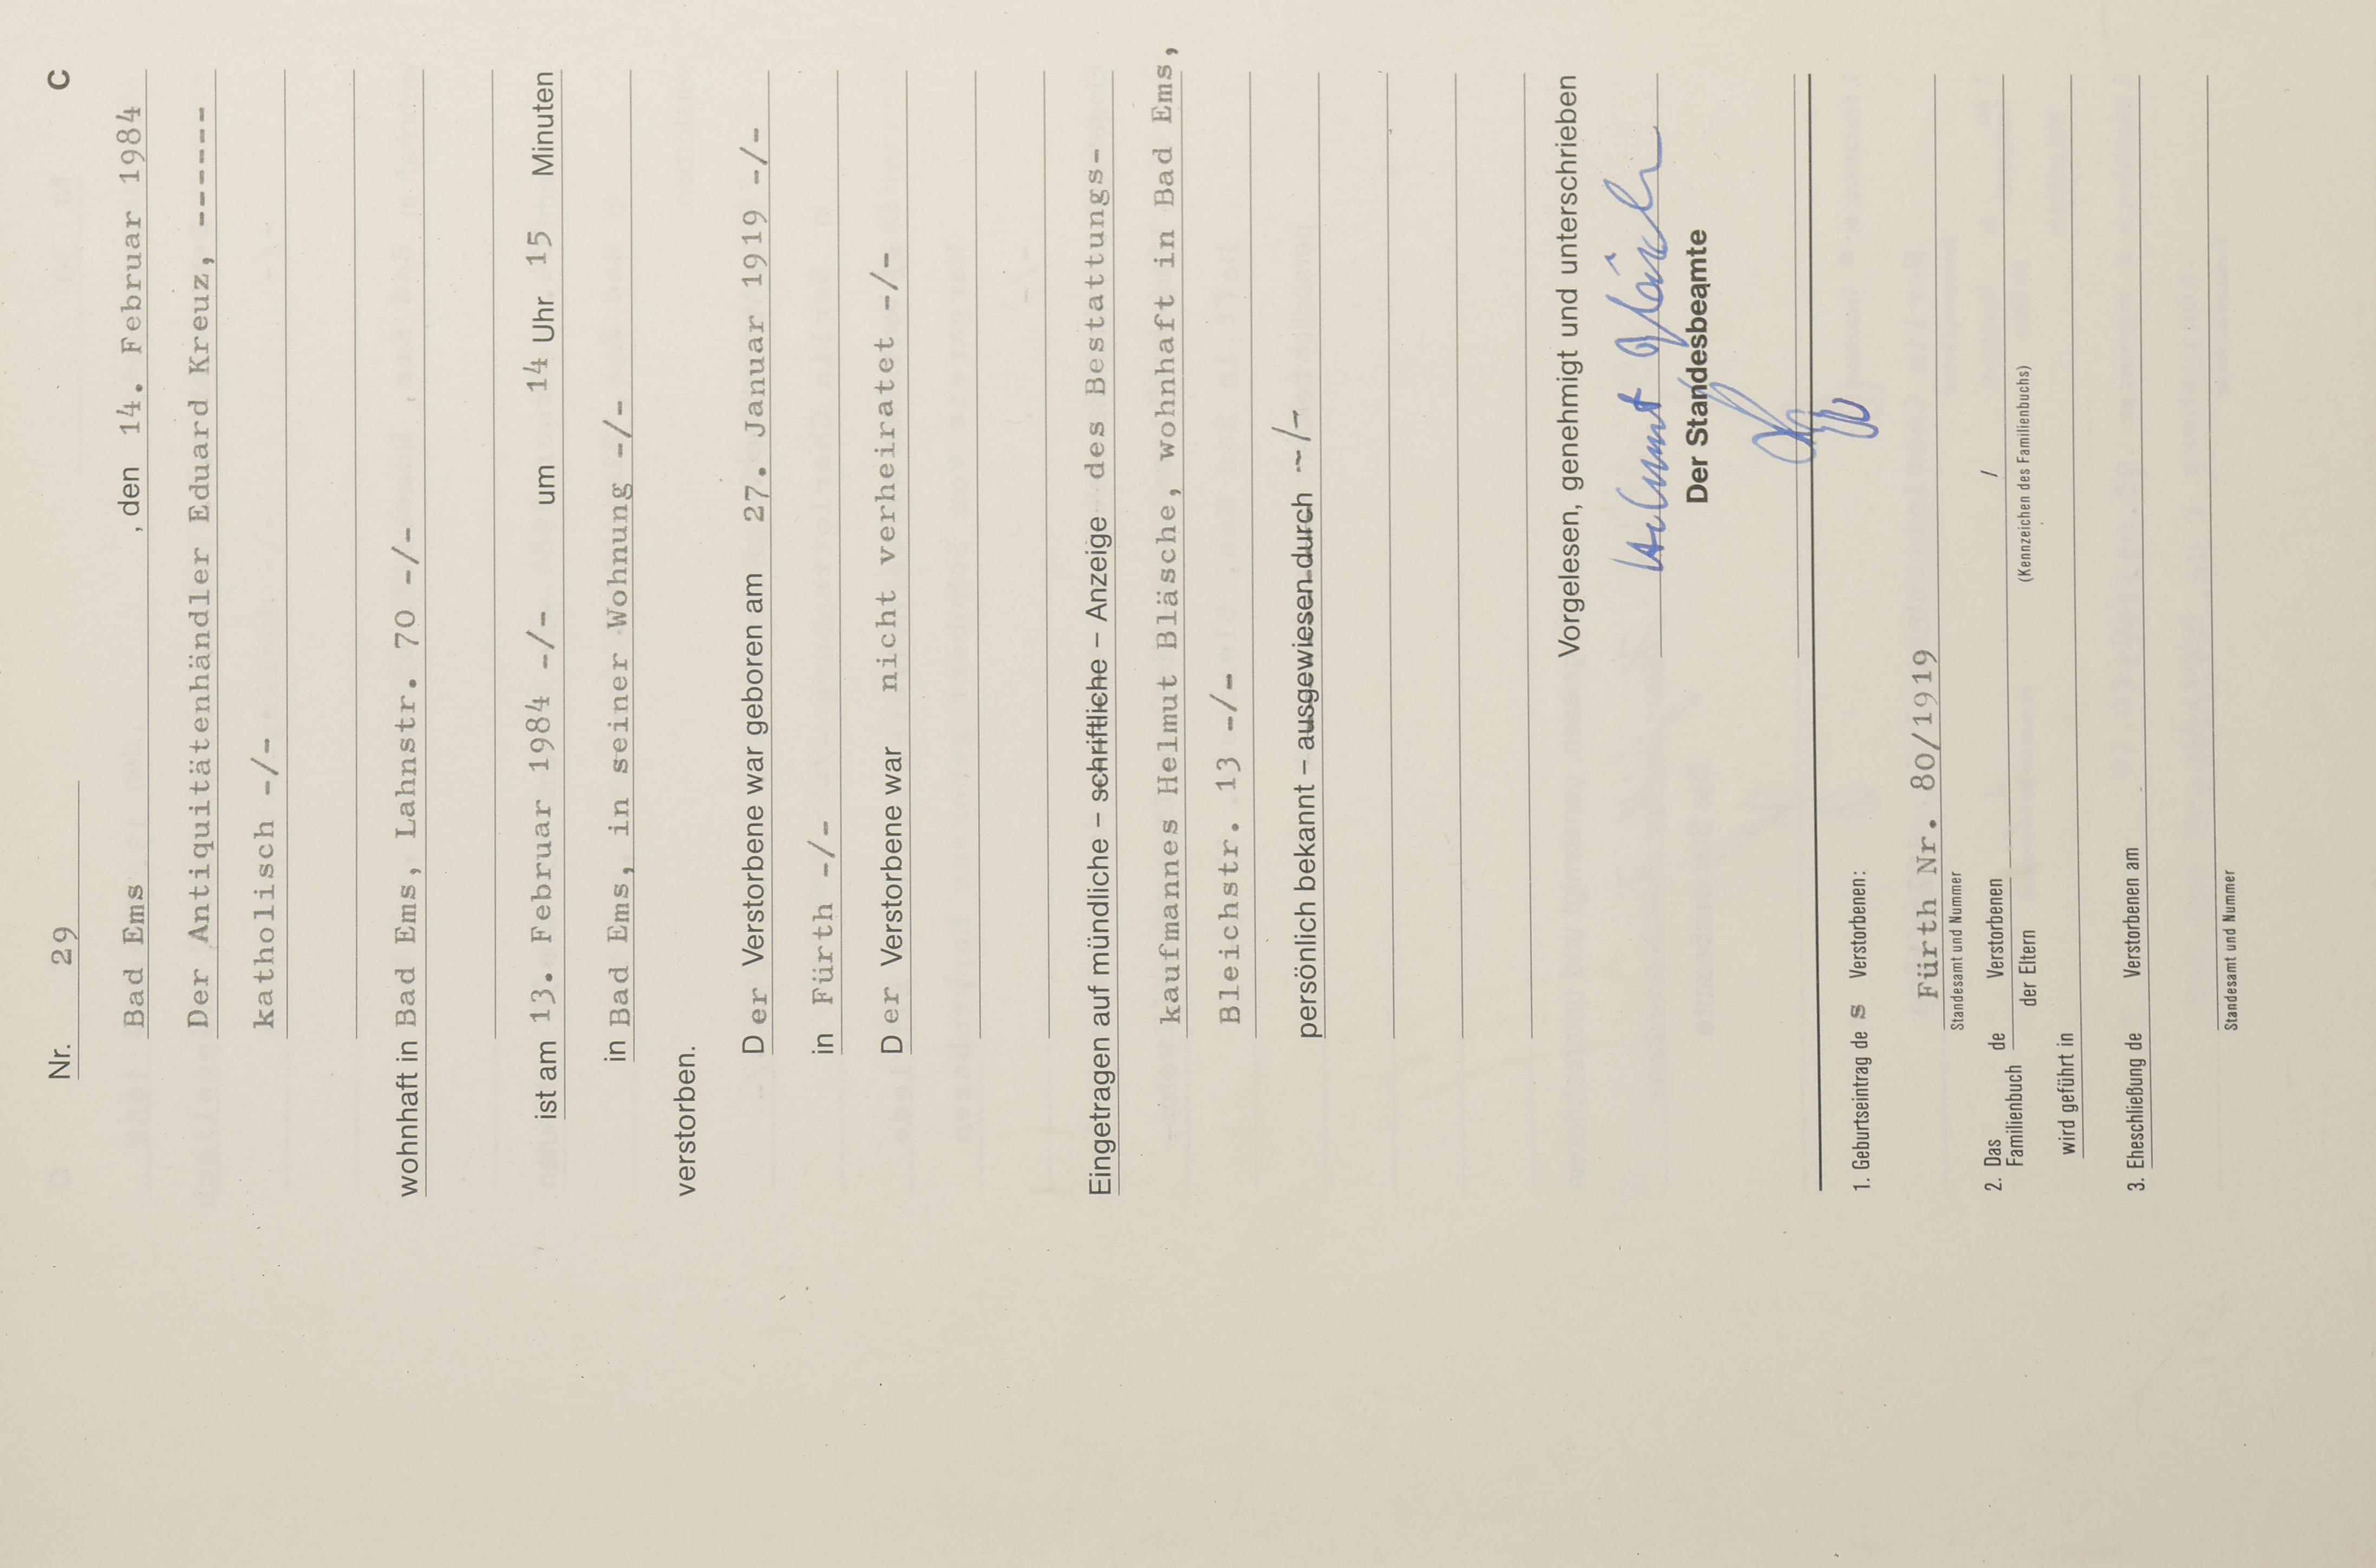 Nr. 29 C
Bad Ems , den 14. Februar 1984
Der Antiquitätenhändler Eduard Kreuz, ------
katholisch -/-
wohnhaft in Bad Ems, Lahnstr. 70 -/-
ist am 13. Februar 1984 -/- um 14 Uhr 15 Minuten
in Bad Ems, in seiner Wohnung -/-
verstorben.
Der Verstorbene war geboren am 27. Januar 1919 -/-
in Fürth -/-
Der Verstorbene war nicht verheiratet -/-
Eingetragen auf mündliche – schriftliche – Anzeige des Bestattungs-
kaufmannes Helmut Bläsche, wohnhaft in Bad Ems,
Bleichstr. 13 -/-
persönlich bekannt – ausgewiesen durch -/-
Vorgelesen, genehmigt und unterschrieben
Helmut Bläsche
Der Standesbeamte
1. Geburtseintrag des Verstorbenen:
Fürth Nr. 80/1919
Standesamt und Nummer
2. Das Familienbuch de Verstorbenen /
der Eltern (Kennzeichen des Familienbuchs)
wird geführt in
3. Eheschließung de Verstorbenen am
Standesamt und Nummer